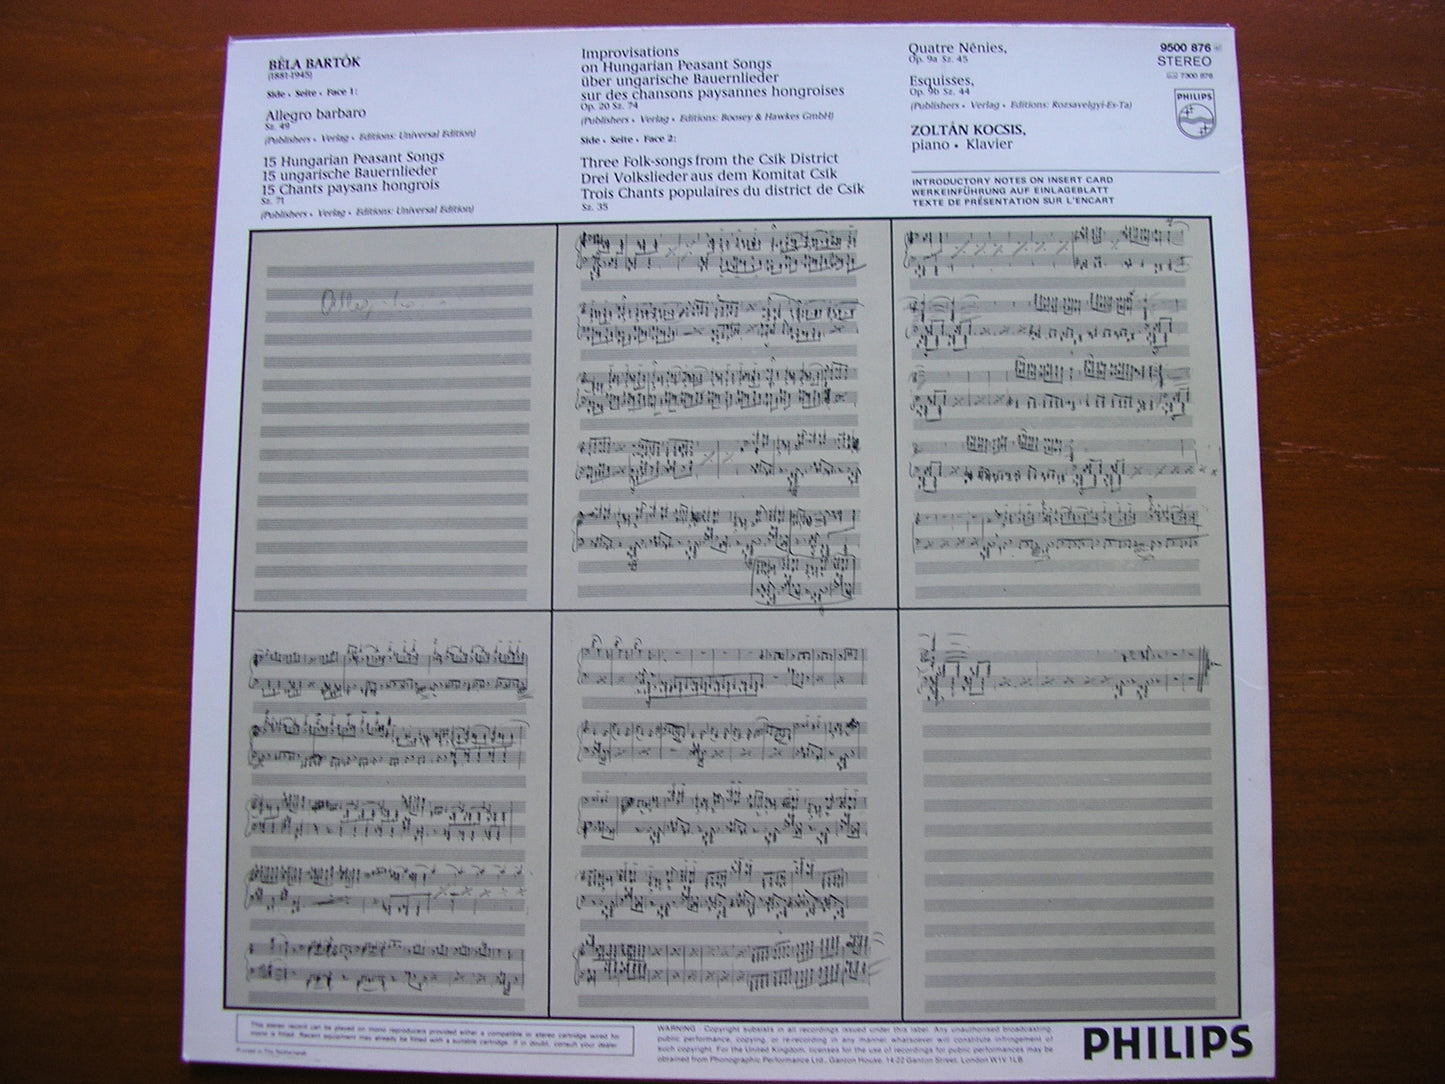 BÉLA BARTÓK
(1881-1945)
Side • Seite • Face 1:
Allegro barbaro
Sz. 49
(Publishers • Verlag • Editions: Universal Edition)
15 Hungarian Peasant Songs
15 ungarische Bauernlieder
15 Chants paysans hongrois
Sz. 71
(Publishers • Verlag • Editions: Universal Edition)
Improvisations
on Hungarian Peasant Songs
über ungarische Bauernlieder
sur des chansons paysannes hongroises
Op. 20 Sz. 74
(Publishers • Verlag • Editions: Boosey & Hawkes GmbH)
Side • Seite • Face 2:
Three Folk-songs from the Csík District
Drei Volkslieder aus dem Komitat Csík
Trois Chants populaires du district de Csík
Sz. 35
Quatre Nénies,
Op. 9a Sz. 45
Esquisses,
Op. 9b Sz. 44
(Publishers • Verlag • Editions: Rozsavelgyi-Es-Ta)
ZOLTÁN KOCSIS,
piano • Klavier
INTRODUCTORY NOTES ON INSERT CARD
WERKEINFÜHRUNG AUF EINLAGEBLATT
TEXTE DE PRÉSENTATION SUR L'ENCART
9500 876
STEREO
7300 876
PHILIPS
This stereo record can be played on mono reproducers provided either a compatible or stereo cartridge wired for
mono is fitted. Recent equipment may already be fitted with a suitable cartridge. If in doubt, consult your dealer
Printed in The Netherlands
WARNING: Copyright subsists in all recordings issued under this label. Any unauthorised broadcasting,
public performance, copying, or re-recording in any manner whatsoever will constitute infringement of
such copyright. For the United Kingdom, licenses for the use of recordings for public performances may be
obtained from Phonographic Performance Ltd., Ganton House, 14-22 Ganton Street, London W1V 1LB
PHILIPS